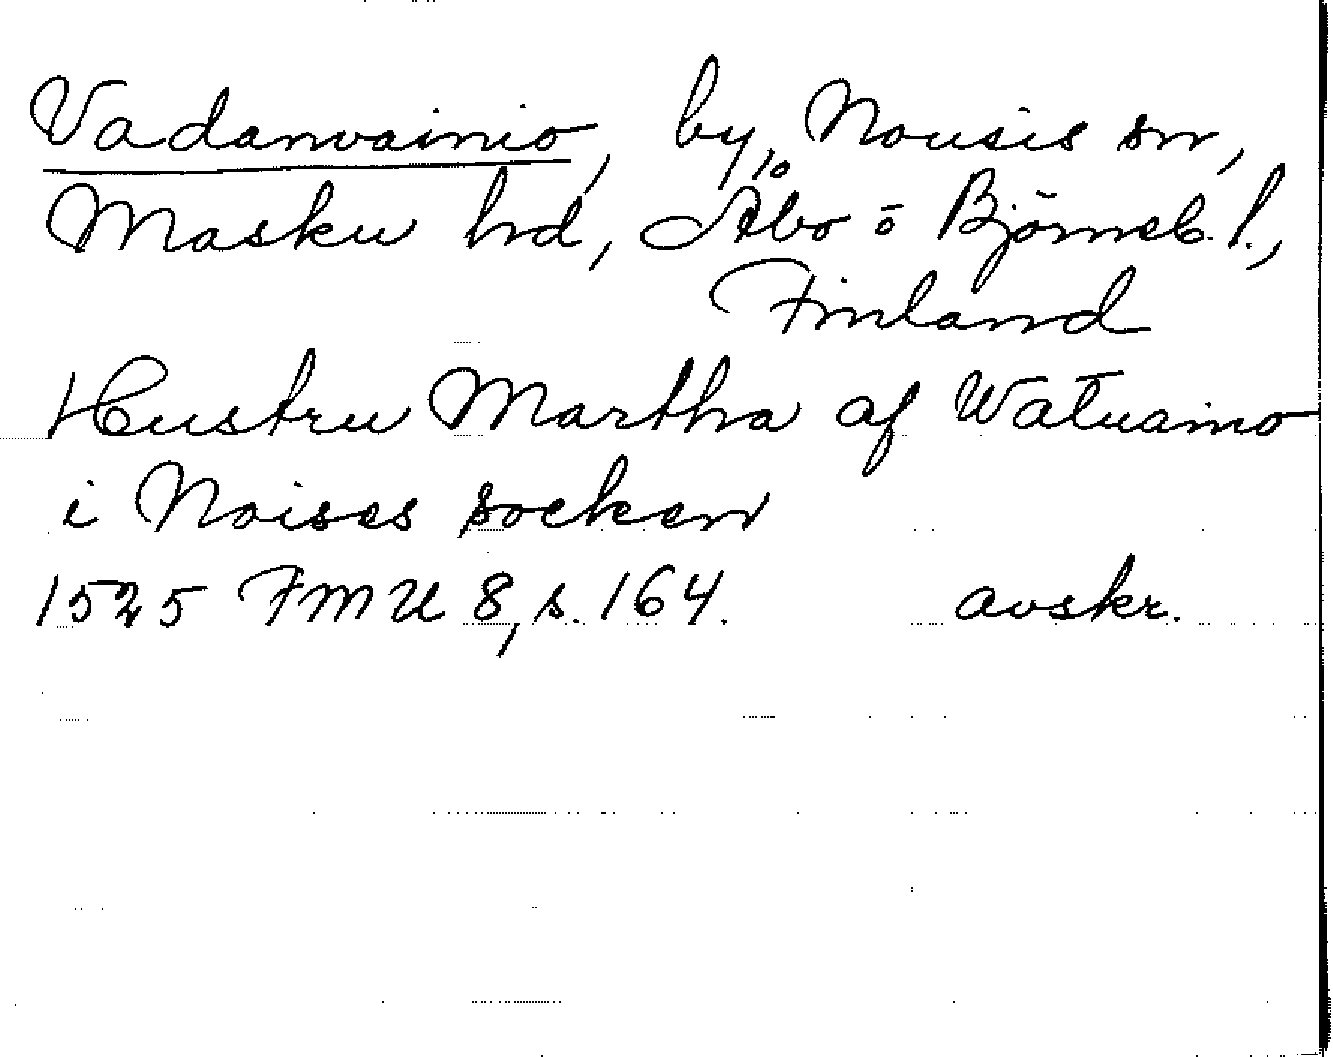 Vadanvainio, by, Nousis sn,
Masku hd, Åbo ō Björneb. l.,
Finland
Hustru Martha af Watuaino
i Noises socken
1525 FMU 8, s. 164. avskr.